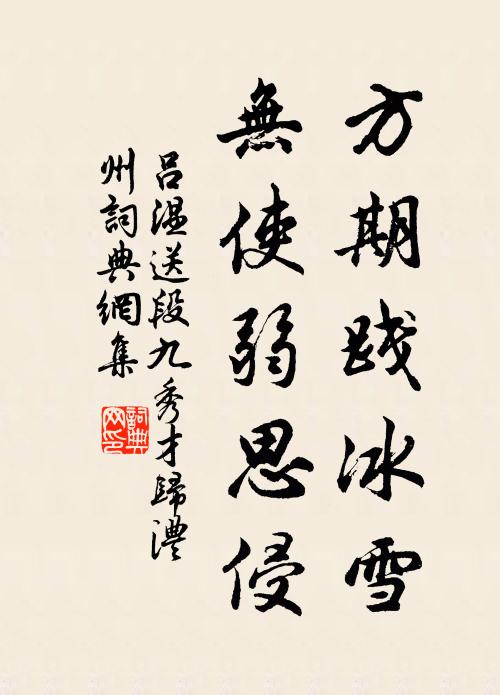 方期践冰雪
無使弱思侵
吕温送段九秀才歸澧
州詞典網集
詞典网印